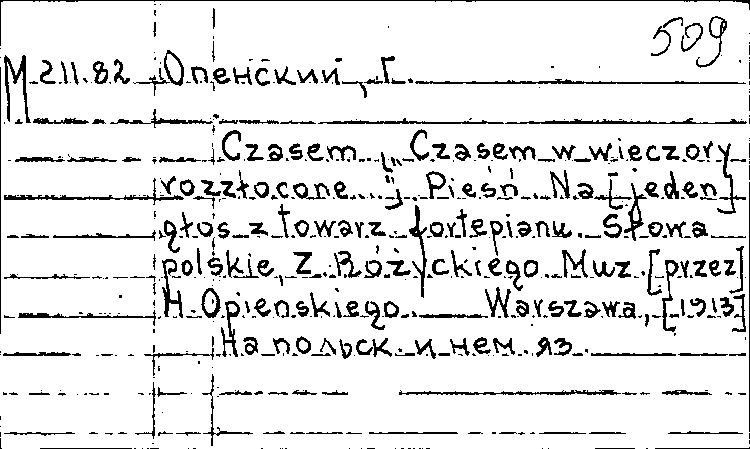 509
М 211.82 Опенский, Г.
Czasem [„Czasem w wieczory
rozzłocone..."]. Pieśń. Na [jeden]
głos z towarz. fortepianu. Słowa
polskie, Z. Różyckiego. Muz. [przez]
H. Opienskiego. Warszawa, [1913]
На польск. и нем. яз.